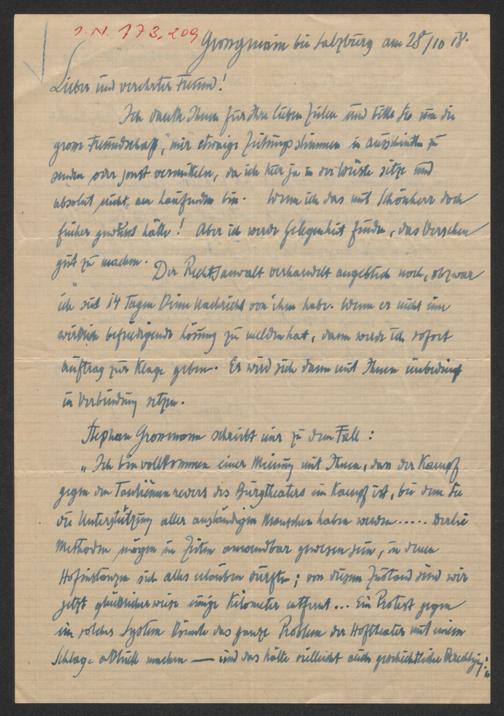 I.N. 173,209
Grossgmain bei Salzburg am 28/10 18.
Lieber und verehrter Freund!
Ich danke Ihnen für Ihre lieben Zeilen und bitte Sie um die
grosse Freundschaft, mir etwaige Zeitungsstimmen in Ausschnitten zu
senden oder sonst vermitteln, da ich hier ja in der Wüste sitze und
absolut nicht am Laufenden bin. Wenn ich das mit Schönherr doch
früher gewusst hätte! Aber ich werde Gelegenheit finden, das Versehen
gut zu machen. Der Rechtsanwalt verhandelt angeblich noch, obzwar
ich seit 14 Tagen keine Nachricht von ihm habe. Wenn er nicht eine
wirklich befriedigende Lösung zu melden hat, dann werde ich sofort
Auftrag zur Klage geben. Er wird sich dann mit Ihnen unbedingt
in Verbindung setzen.
Stephan Grossmann schreibt mir zu dem Fall:
„Ich bin vollkommen einer Meinung mit Ihnen, dass der Kampf
gegen den Tantièmenrevers des Burgtheaters ein Kampf ist, bei dem Sie
die Unterstützung aller anständigen Menschen haben werden..... Derlei
Methoden mögen in Zeiten anwendbar gewesen sein, in denen
Hofinstanzen sich alles erlauben durften; von diesem Zustand sind wir
jetzt glücklicherweise einige Kilometer entfernt... Ein Protest gegen
ein solches System könnte das ganze Problem der Hoftheater mit einem
Schlage aktuell machen — und das hätte vielleicht auch geschichtliche